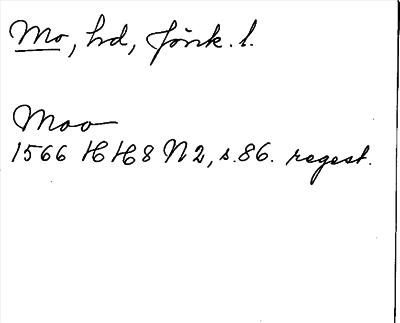 Mo, hd, Jönk. l.
Moo
1566 HH8 N2, s. 86. regest.